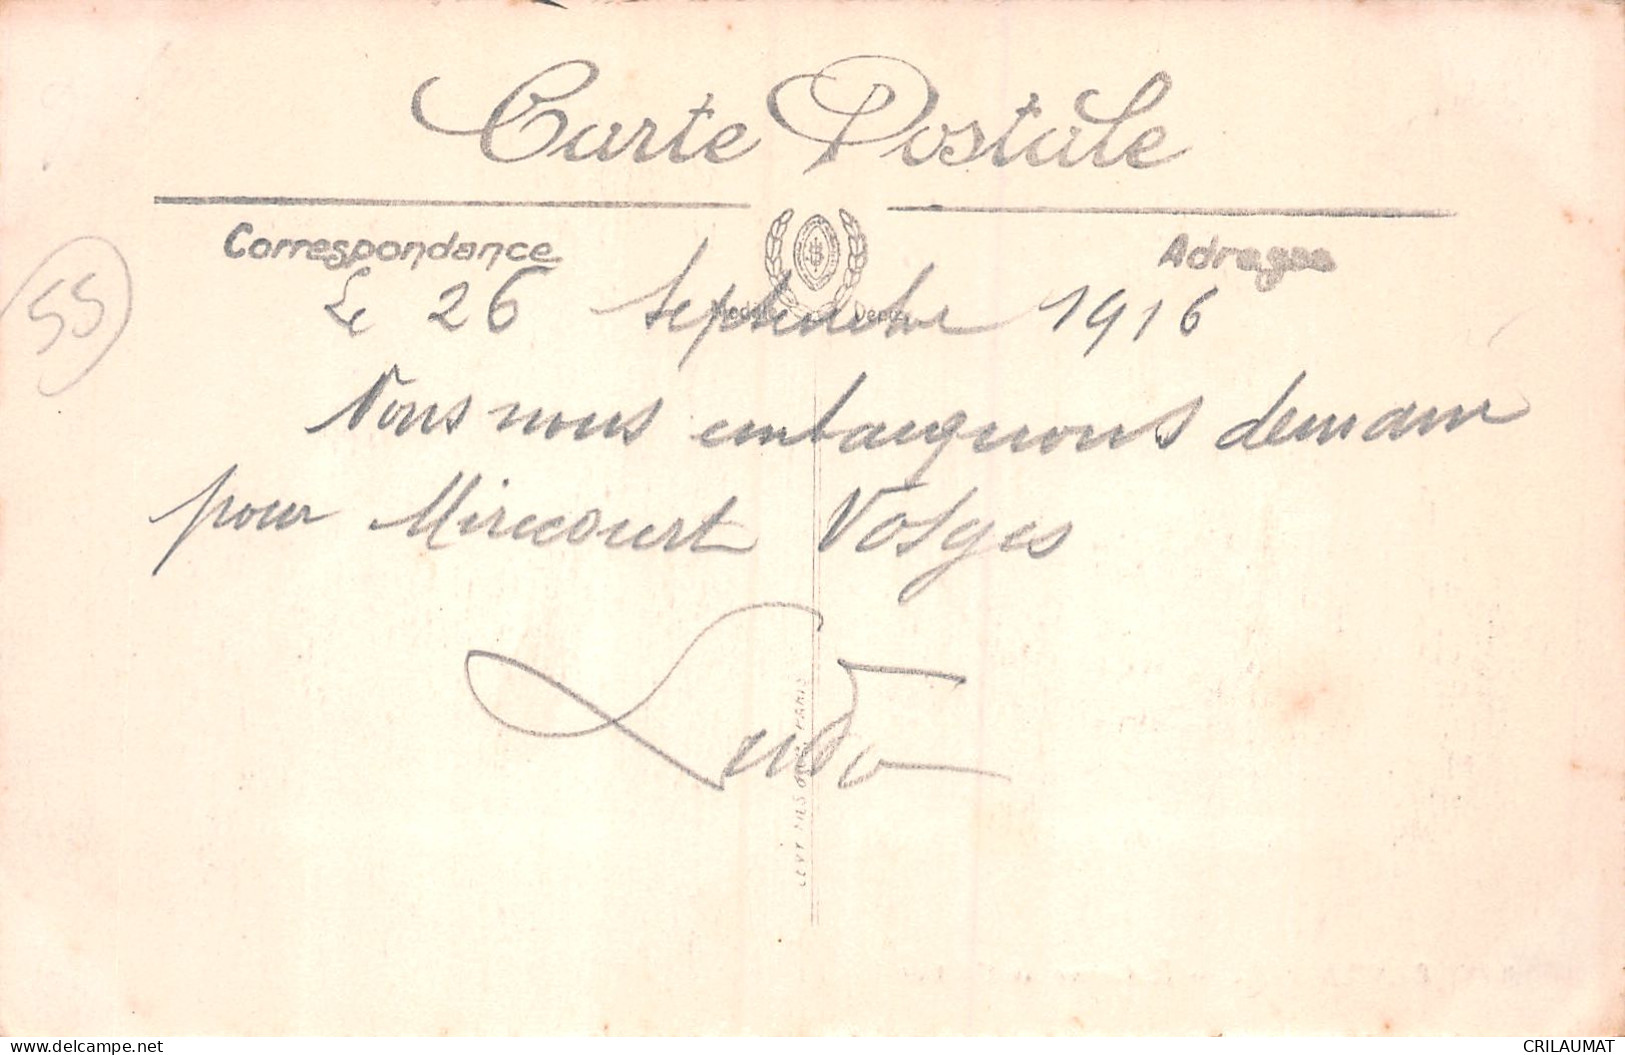 Carte Postale
Correspondance
Adresse
55
Le 26 Septembre 1916
Nous nous embarquons demain
pour Mirecourt Vosges
LEVY FILS & Cie PARIS
www.delcampe.net
CRILAUMAT